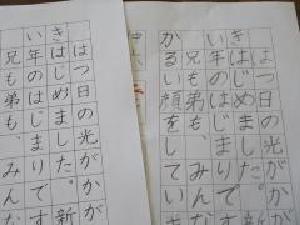 はつ日の光がかが
きはじめました。新
い年のはじまりです
兄も弟も、みんな
はつ日の光がかが
きはじめました。新
い年のはじまりで
兄も弟も、みんな
かるい顔をしてい